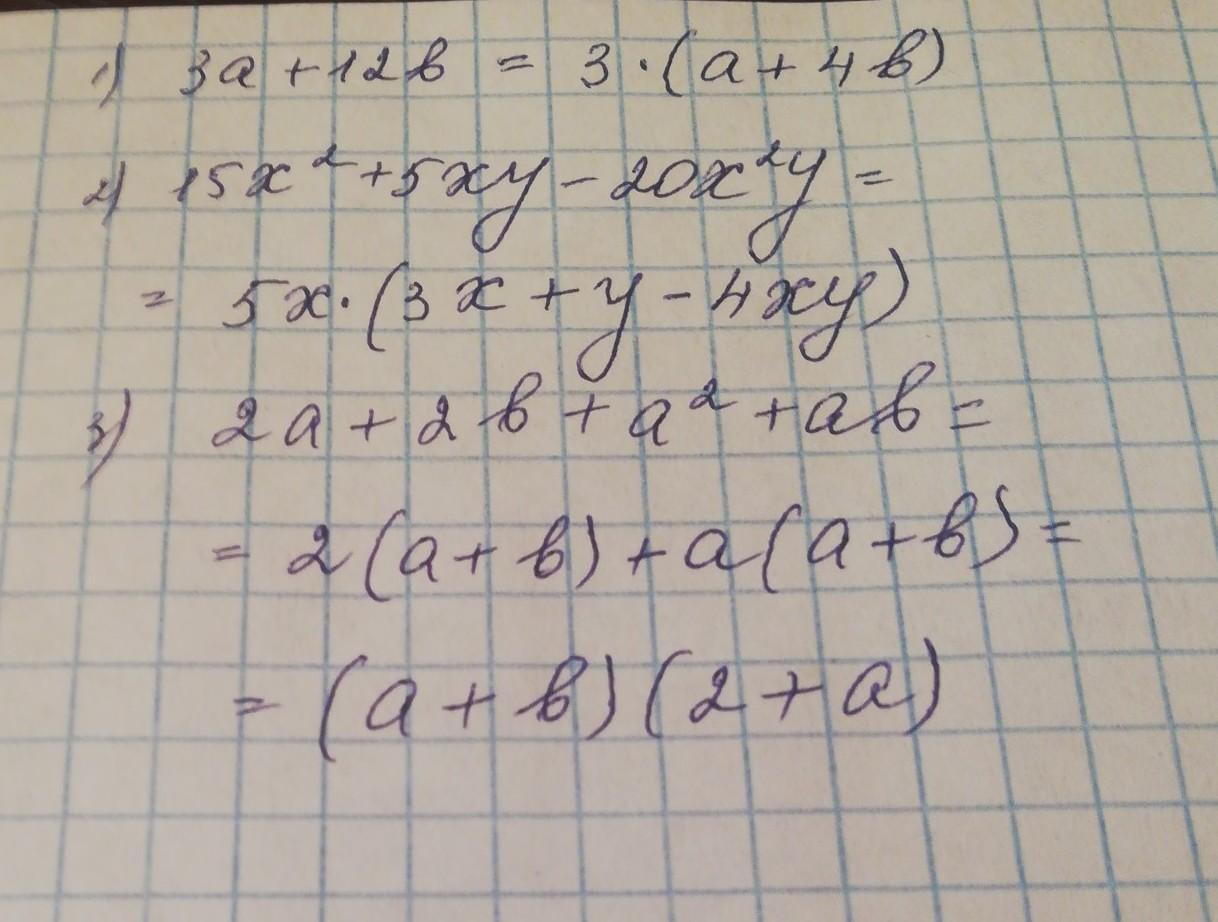 1) 3a + 12b = 3 · (a + 4b)
2) 15x² + 5xy - 20x²y =
= 5x · (3x + y - 4xy)
3) 2a + 2b + a² + ab =
= 2(a + b) + a(a + b) =
= (a + b)(2 + a)